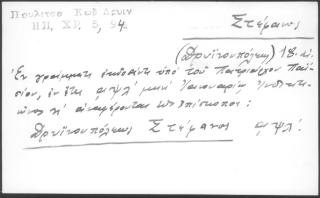 Πουλίτσα Κωδ Δρυιν
ΗΠ, ΧΡ, 5, 94.
Στέφανος
(Δρυϊνουπόλεως) 18 αἰ.
Ἐν γράμματι ἐκδοθέντι ὑπό τοῦ Πατριάρχου Παϊ-
σίου, ἐν ἔτει αψλʹ μηνί Ἰανουαρίῳ Ἰνδικτι-
ῶνος ηʹ ἀναφέρονται ὡς ἐπίσκοποι:
Δρυϊνουπόλεως Στέφανος αψλʹ.